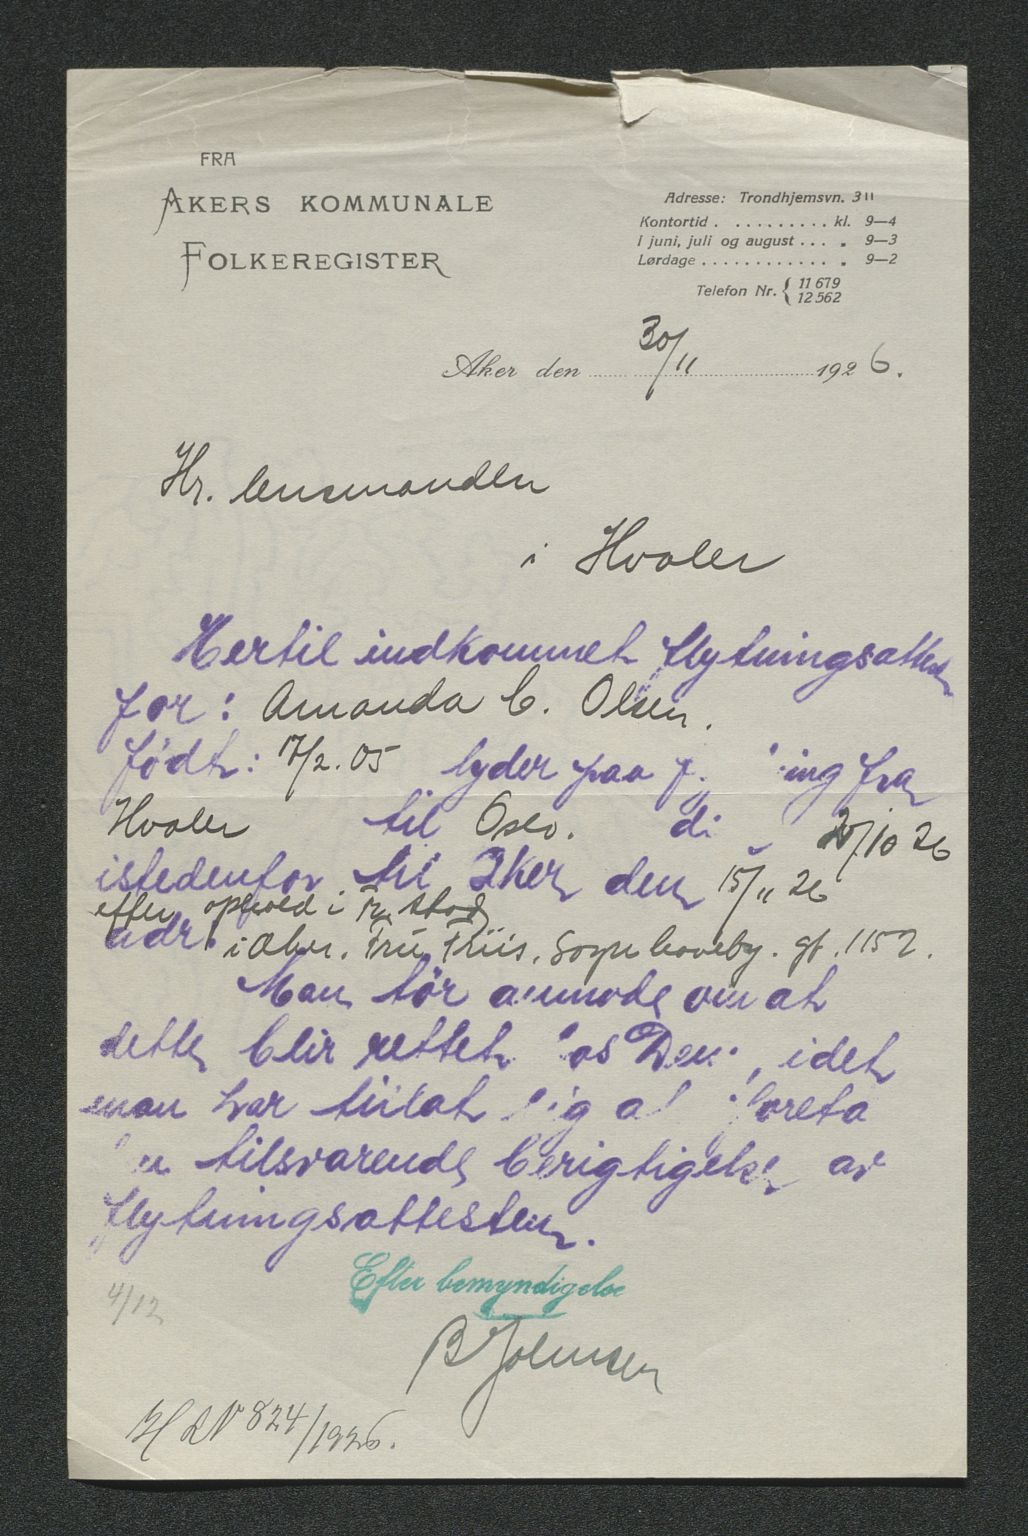 FRA
AKERS KOMMUNALE
FOLKEREGISTER
Adresse: Trondhjemsvn. 3 II
Kontortid . . . . . . . . . . kl. 9—4
I juni, juli og august . . . . „ 9—3
Lørdage . . . . . . . . . . . . . „ 9—2
Telefon Nr. { 11 679
12 562
Aker den 30/11 1926.
Hr. lensmanden
i Hvaler
Hertil indkommet flytningsattest
for: Amanda C. Olsen.
født: 7/2. 05 lyder paa fra
Hvaler til Oslo. 20/10 26
istedenfor til Aker den 15/11 26
efter ophold i
adr. i Aker. Fru Friis, Sogn haveby. 1152.
Man tør anmode om at
dette blir rettet hos Dem, idet
man har tillat sig at foreta
en tilsvarende berigtigelse av
flytningsattesten.
Efter bemyndigelse
B Johnsen
4/12
H LV 824/1926.